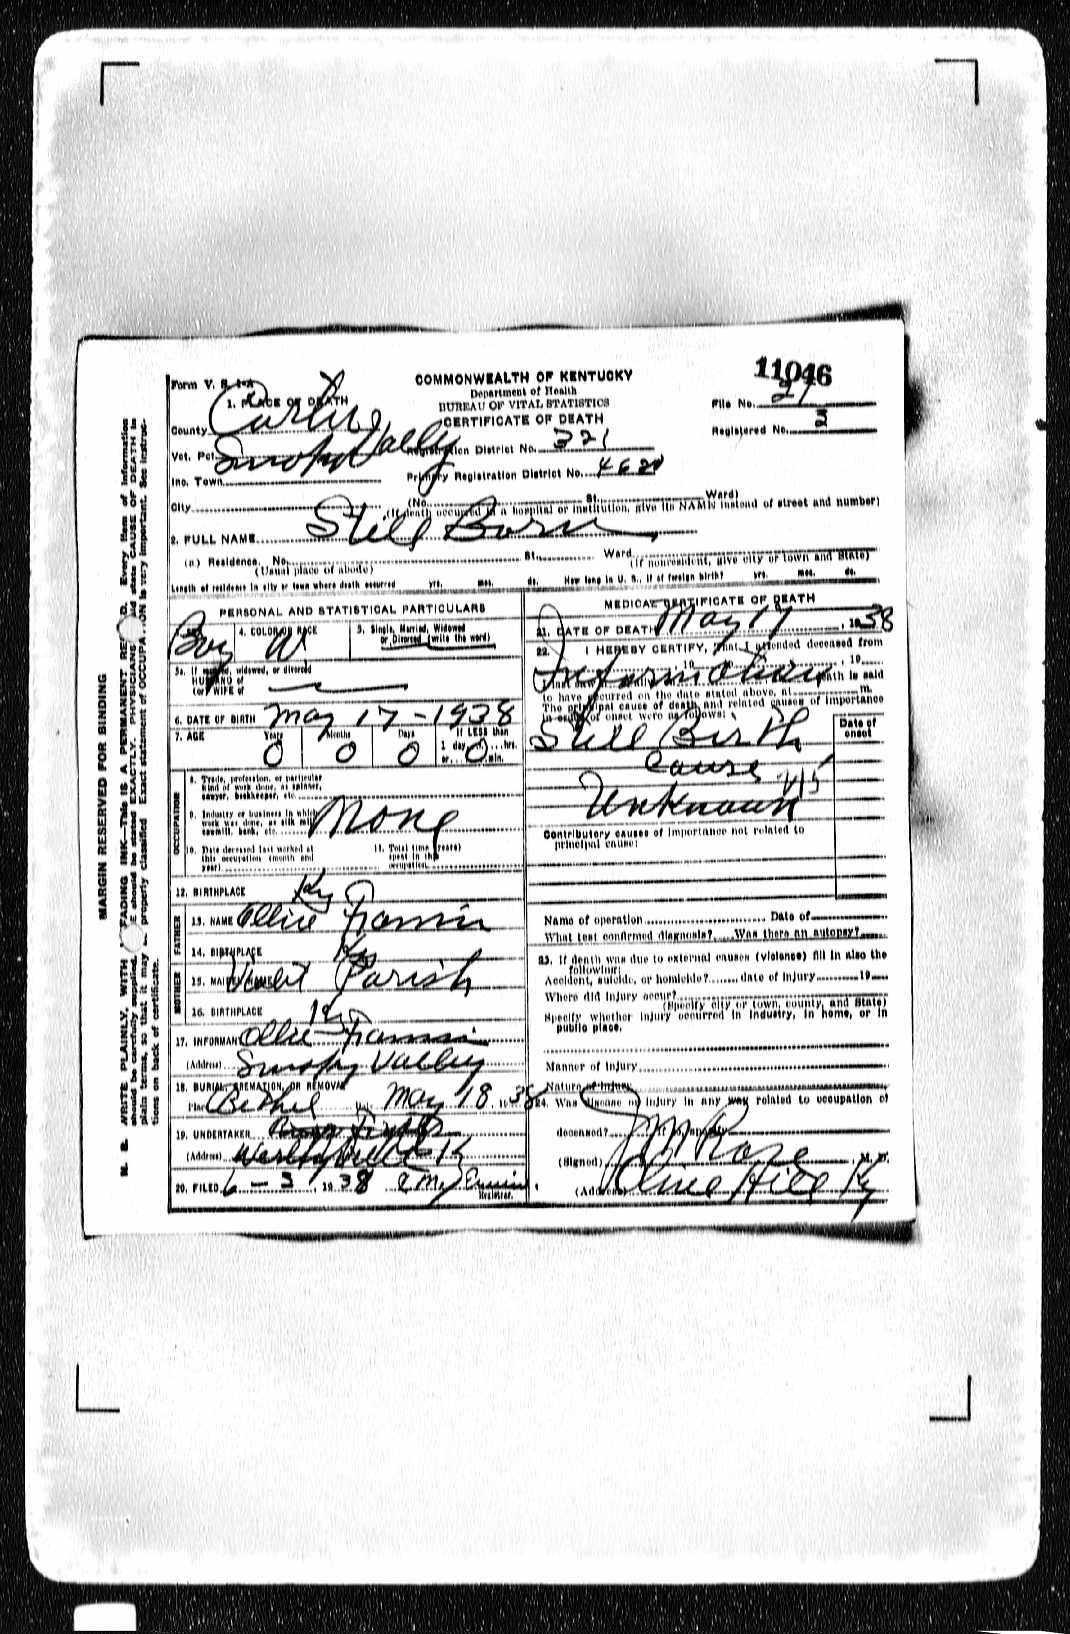 11046
Form V. S. 1-A
COMMONWEALTH OF KENTUCKY
Department of Health
BUREAU OF VITAL STATISTICS
CERTIFICATE OF DEATH
File No. 21
Registered No. 3
1. PLACE OF DEATH
County Carter
Vot. Pct. Smoky Valley
Registration District No. 321
Inc. Town
Primary Registration District No.
City
(No. St. Ward)
(If death occurred in a hospital or institution, give its NAME instead of street and number)
2. FULL NAME Still Born
(a) Residence. No. St. Ward
(Usual place of abode)
(If nonresident, give city or town and State)
Length of residence in city or town where death occurred yrs. mos. ds. How long in U. S., if of foreign birth? yrs. mos. ds.
PERSONAL AND STATISTICAL PARTICULARS
Boy
4. COLOR OR RACE
W
5. Single, Married, Widowed
or Divorced (write the word)
5a. If married, widowed, or divorced
HUSBAND of
(or) WIFE of
6. DATE OF BIRTH May 17 - 1938
7. AGE Years Months Days If LESS than
1 day, 0 hrs.
or min.
0 0 0
OCCUPATION
8. Trade, profession, or particular
kind of work done, as spinner,
sawyer, bookkeeper, etc.
9. Industry or business in which
work was done, as silk mill,
sawmill, bank, etc.
None
10. Date deceased last worked at
this occupation (month and
year)
11. Total time (years)
spent in this
occupation
12. BIRTHPLACE Ky
FATHER
13. NAME Ollie
14. BIRTHPLACE Ky
MOTHER
15. MAIDEN NAME Violet Parish
16. BIRTHPLACE Ky
17. INFORMANT Ollie
(Address) Smoky Valley
18. BURIAL, CREMATION, OR REMOVAL
Place Bethel Date May 18, 1938
19. UNDERTAKER
(Address)
20. FILED 6 - 3, 1938 Erwin
Registrar.
MEDICAL CERTIFICATE OF DEATH
21. DATE OF DEATH May 17, 1938
22. I HEREBY CERTIFY, That I attended deceased from
Information
death is said
to have occurred on the date stated above, at m.
The principal cause of death and related causes of importance
in order of onset were as follows:
Date of
onset
Still Birth
Cause
Unknown
Contributory causes of importance not related to
principal cause:
Name of operation Date of
What test confirmed diagnosis? Was there an autopsy?
23. If death was due to external causes (violence) fill in also the
following:
Accident, suicide, or homicide? date of injury 19
Where did injury occur?
(Specify city or town, county, and State)
Specify whether injury occurred in industry, in home, or in
public place.
Manner of injury
Nature of injury
24. Was disease or injury in any way related to occupation of
deceased? If so, specify
(Signed) J M Rose M. D.
(Address) Olive Hill Ky
MARGIN RESERVED FOR BINDING
N. B. WRITE PLAINLY, WITH FADING INK—This IS A PERMANENT RECORD. Every item of information
should be carefully supplied. should be stated EXACTLY. PHYSICIANS should state CAUSE OF DEATH in
plain terms, so that it may be properly classified. Exact statement of OCCUPATION is very important. See instruc-
tions on back of certificate.